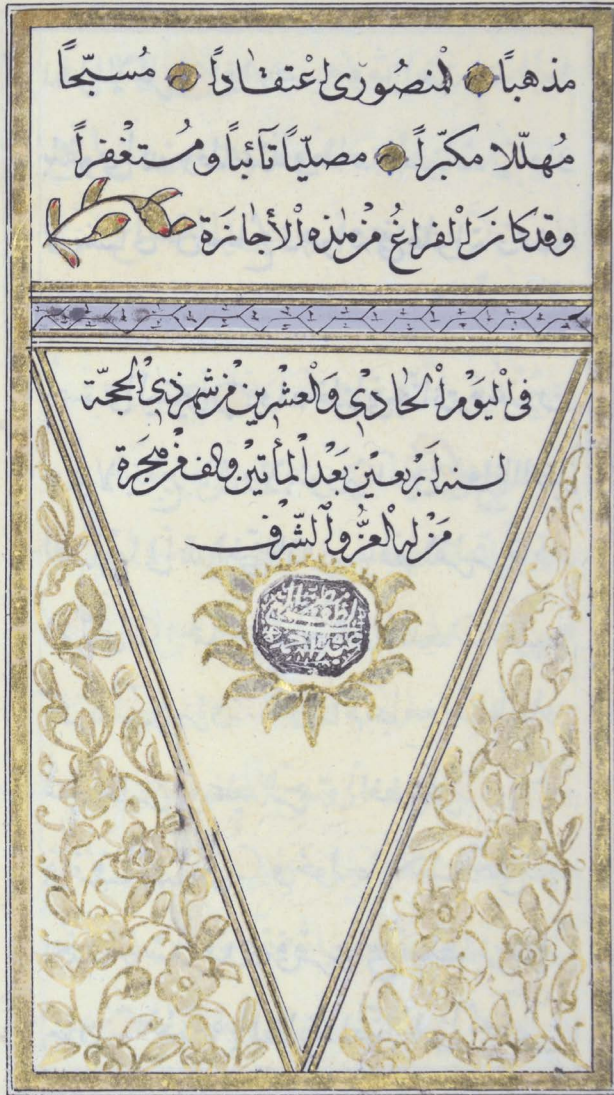 مذهباً المنصُورى اعتقاداً مُسبّحاً
مُهلّلا مكبّراً مصلّياً تآئباً ومستغفراً
وقد كان الفراغُ من هٰذه الأجازة
فى اليوم الحادى والعشرين من شهر ذى الحجّة
لسنه اربعين بعد المأتين والف من هجرة
من له العزُّ والشّرف